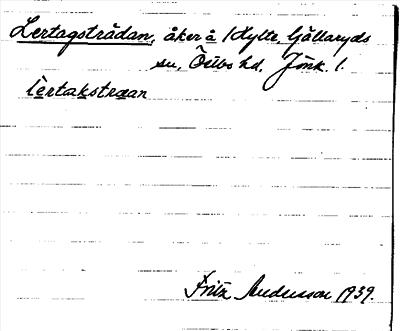 Lertagsträdan, åker å Idylte, Gällaryds
sn, Östbo hd. Jönk. l.
lèrtakstræan
Fritz Andersson 1939.